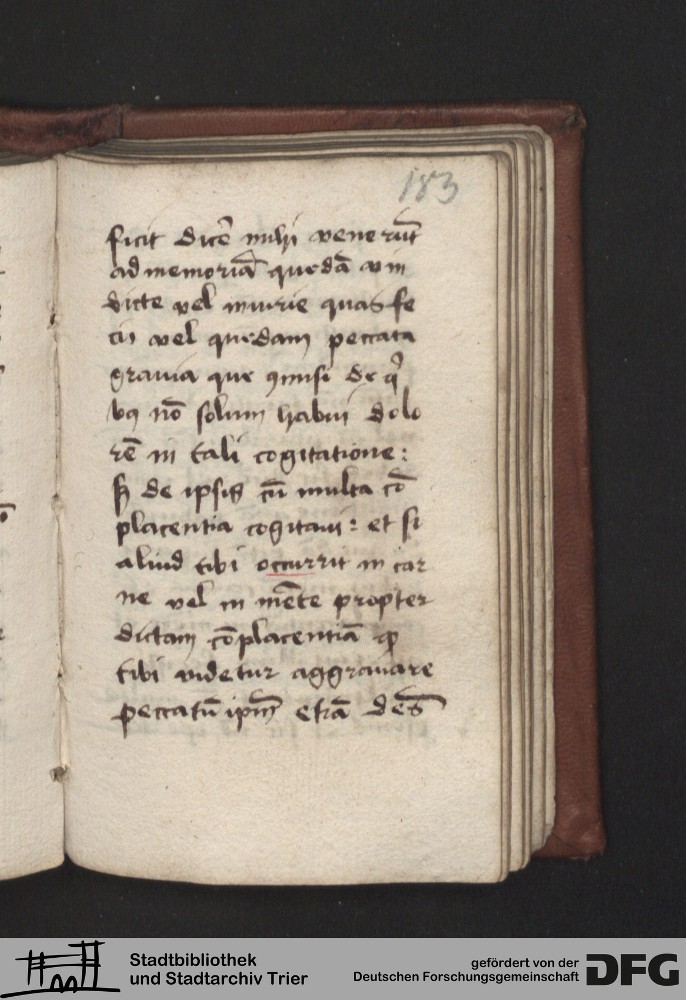 183
ficit dicē mihi venerūt
ad memoriā quedā vin
dicte vel iniurie quas fe
ci vel quedam peccata
grauia que ꝯmisi de qͥ
bꝰ nō solum habui dolo
rē in tali cogitatione :
sꝫ de ipsis cū multa cō
placentia cogitaui : et si
aliud tibi occurrit in car
ne vel in mēte propter
dictam cōplacentiā qꝫ
tibi videtur aggrauare
peccatū ipm̄ etiā
Stadtbibliothek
und Stadtarchiv Trier
gefördert von der
Deutschen Forschungsgemeinschaft
DFG